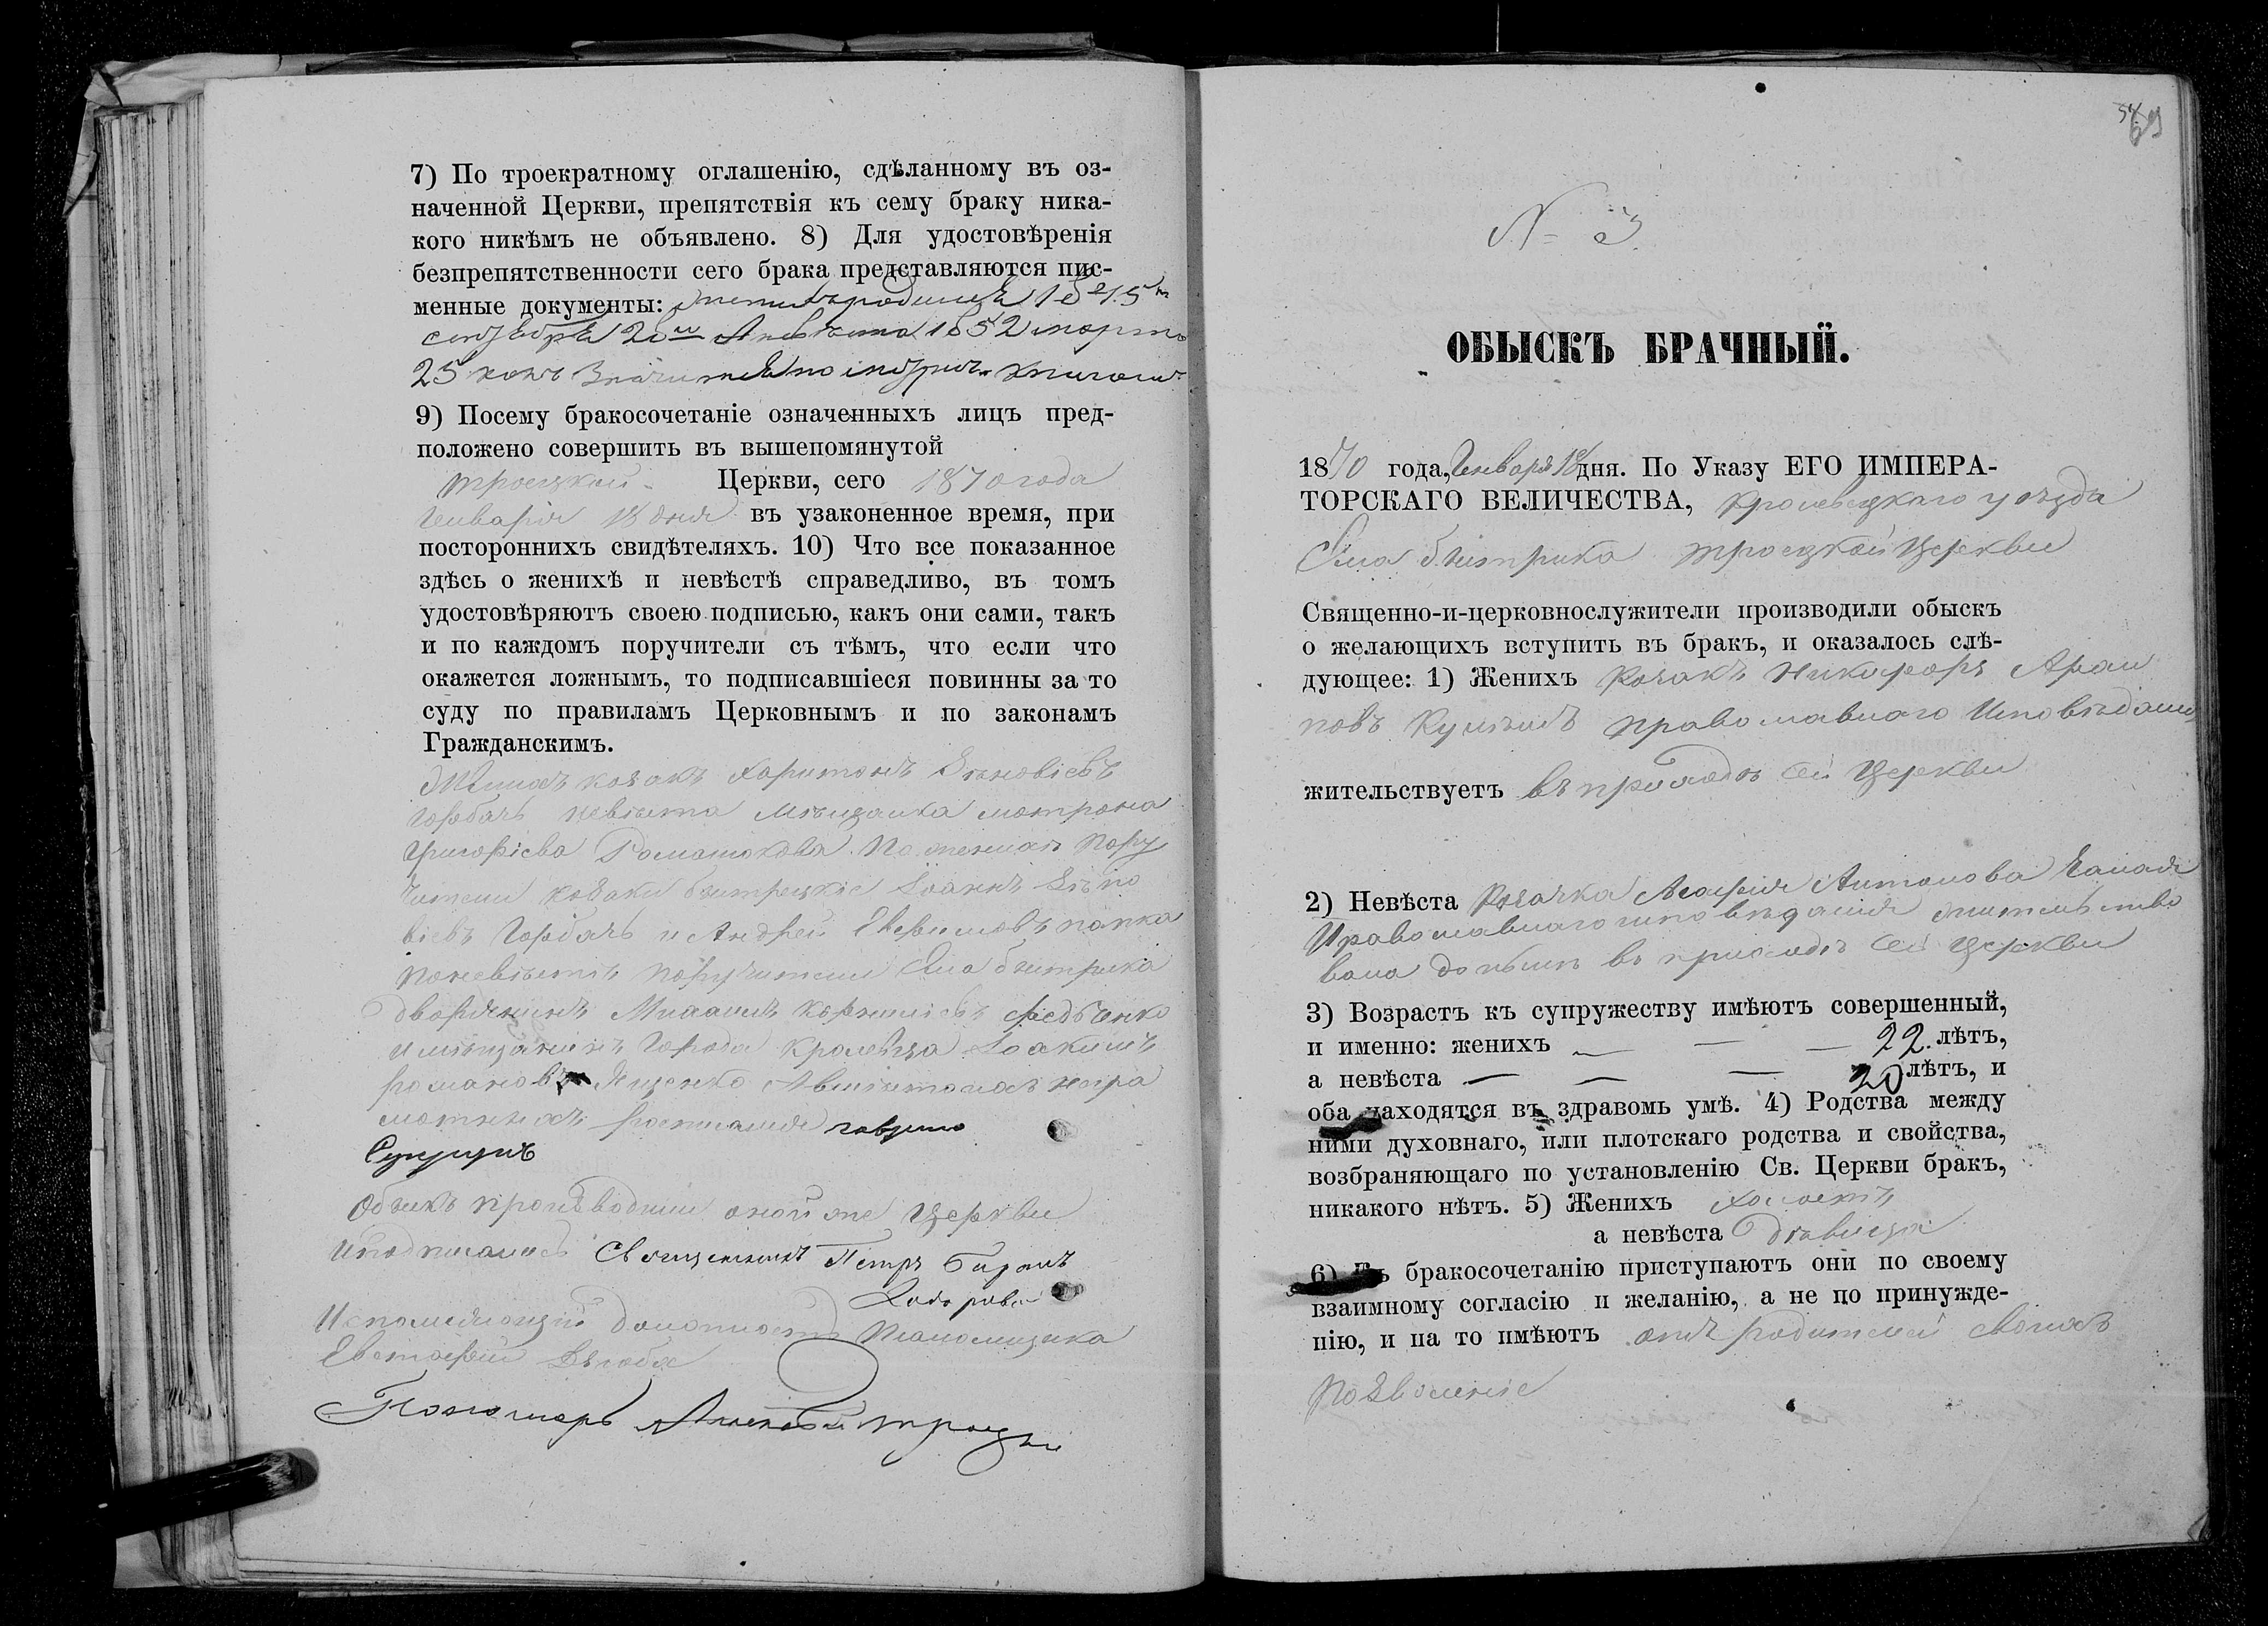 7) По троекратному оглашенію, сдѣланному въ оз-
наченной Церкви, препятствія къ сему браку ника-
кого никѣмъ не объявлено. 8) Для удостовѣренія
безпрепятственности сего брака представляются пис-
менные документы:
1852 марта
25
9) Посему бракосочетаніе означенныхъ лицъ пред-
положено совершить въ вышепомянутой
троецкой Церкви, сего 1870 года
Генваря 18 дня въ узаконенное время, при
постороннихъ свидѣтеляхъ. 10) Что все показанное
здѣсь о женихѣ и невѣстѣ справедливо, въ томъ
удостовѣряютъ своею подписью, какъ они сами, такъ
и по каждомъ поручители съ тѣмъ, что если что
окажется ложнымъ, то подписавшіеся повинны за то
суду по правиламъ Церковнымъ и по законамъ
Гражданскимъ.
Женихъ козакъ Харитонъ
Горбачъ невѣста мѣщанка мотрона
Григоріева Романюкова По женихѣ Пору
чители козаки Іоаннъ
Горбачъ и Андрей Евфимовъ папка
поневѣстѣ поручители Села быстрика
дворянинъ Михаилъ Корниліевъ Федченко
и мѣщанинъ Города Кролевца Іоакимъ
романовъ Яценко А вмѣсто ихъ негра
мотныхъ росписался
Обыскъ производили оной же Церкви
и подписались Священникъ Петръ
Исполняющій должность псаломщика
Евстафій
Пономарь Алексѣй
№ 3
ОБЫСКЪ БРАЧНЫЙ.
1870 года, Генваря 18 дня. По Указу ЕГО ИМПЕРА-
ТОРСКАГО ВЕЛИЧЕСТВА, Кролевецкаго уѣзда
Села быстрика троецкой Церкви
Священно-и-церковнослужители производили обыскъ
о желающихъ вступить въ бракъ, и оказалось слѣ-
дующее: 1) Женихъ Козакъ Никифоръ
православнаго Исповѣданія
жительствуетъ въ приходѣ сей Церкви
2) Невѣста Козачка Антонова
Православнаго исповѣданія жительство
вала до нынѣ въ приходѣ сей Церкви
3) Возрастъ къ супружеству имѣютъ совершенный,
и именно: женихъ — — — 22 лѣтъ,
а невѣста — — — 20 лѣтъ, и
оба находятся въ здравомъ умѣ. 4) Родства между
ними духовнаго, или плотскаго родства и свойства,
возбраняющаго по установленію Св. Церкви бракъ,
никакого нѣтъ. 5) Женихъ холостъ
а невѣста дѣвица
6) Къ бракосочетанію приступаютъ они по своему
взаимному согласію и желанію, а не по принужде-
нію, и на то имѣютъ отъ родителей своихъ
позволеніе